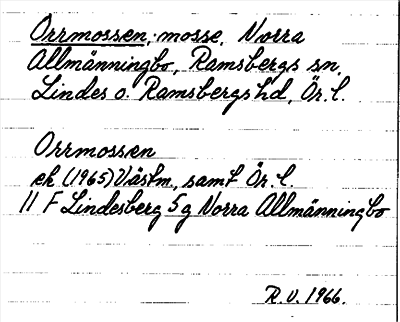 Orrmossen, mosse, Norra
Allmänningbo, Ramsbergs sn,
Lindes o. Ramsbergs hd, Ör. l.
Orrmossen
ek (1965) Västm., samt Ör. l.
11 F Lindesberg 5 g Norra Allmänningbo
R.V. 1966.